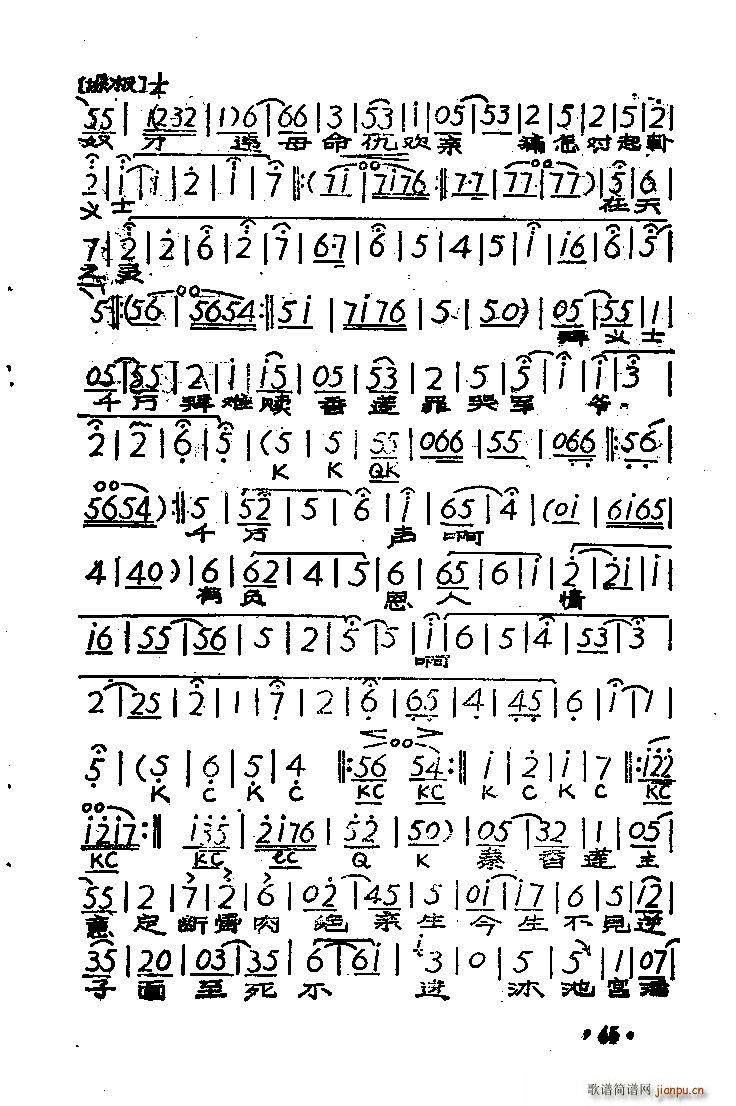 55 | (1232 | 1) 6 | 66 | 3 | 53 | i | 05 | 53 | 2 | 5 | 2 | 5 | 2 |
母命仇欢亲 痛 对起
2 | i | i | 2 | i | 7 |: ( 7i | 7i76 :| 7·7 | 77 | 77 ) | 5 | 6 |
义士 在天
7 | 2 | 2 | 6 | 2 | 7 | 6·7 | 6 | 5 | 4 | 5 | i | i6 | 6 | 5 |
之灵
5 |: (56 | 5654 :| 5i | 7i76 | 5 | 50) | 05 | 55 | 1 |
拜义士
05 | 55 | 2 | i | i5 | 05 | 53 | 2 | 5 | 5 | i | i | 3 |
千万拜难赎香莲罪哭军爷
2 | 2 | 6 | 5 | (5 | 5 | 55 | 066 | 55 | 066 |: 56 |
K K QK
5654) :| 5 | 52 | 5 | 5 | 6 | i | 65 | 4 | (0i | 6i65 |
千万 声啊
4 | 40) | 6 | 62 | 4 | 5 | 6 | 65 | 6 | i | 2 | 2i | i |
负 恩人 情
i6 | 55 | 56 | 5 | 2 | 5 | 5 | i | 6 | 5 | 4 | 53 | 3 |
啊
2 | 25 | 2 | 1 | 7 | 2 | 6 | 65 | 4 | 45 | 6 | i | 1 |
5 | (5 | 6 | 5 | 4 |: 56 54 :| i | 2 | i | 7 |: i22 |
K C K C KC KC K C K C KC
i2i7 :| i35 | 2i76 | 52 | 50) | 05 | 32 | 1 | 05 |
KC KC Q K 秦香莲主
55 | 2 | 7 | 2 | 6 | 02 | 45 | 5 | 0i | i7 | 6 | 5 | i2 |
意定断骨肉绝亲生今生不见逆
35 | 20 | 03 | 35 | 6 | 6i | i3 | 0 | 5 | 5 | 1 | 07 |
子面至死不 进沐池宫
·65·
歌谱简谱网 jianpu.cn